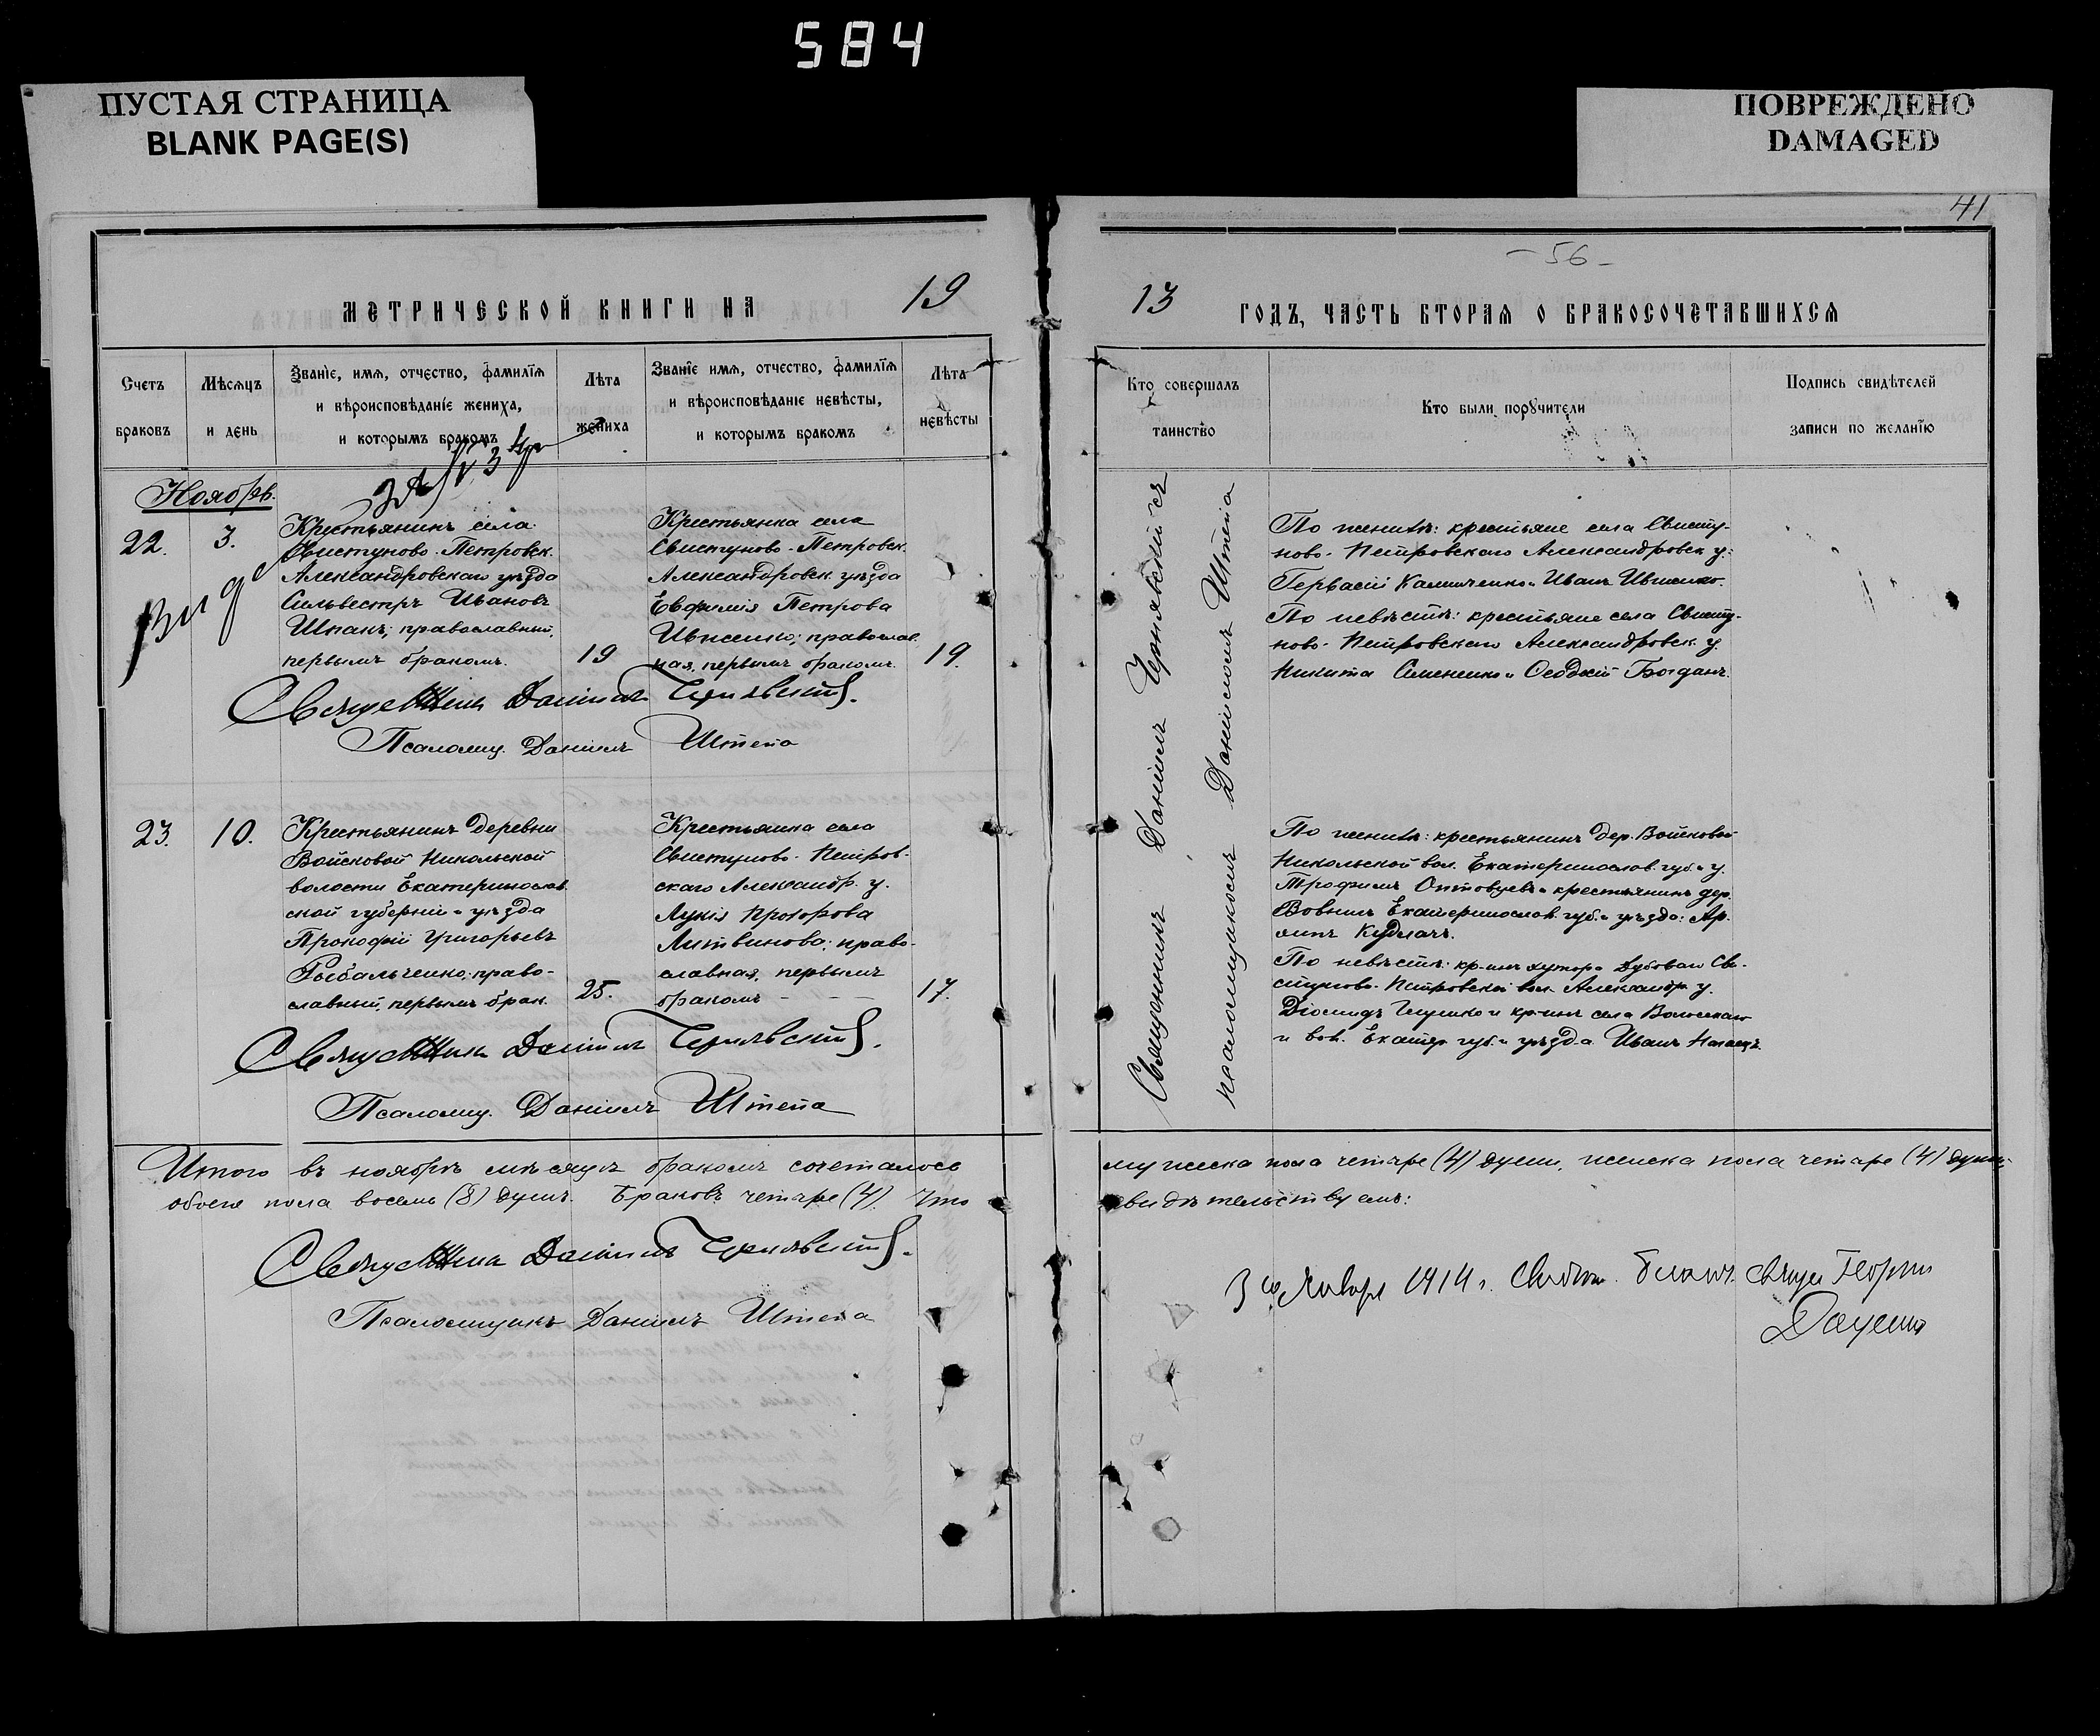 584
ПУСТАЯ СТРАНИЦА
BLANK PAGE(S)
ПОВРЕЖДЕНО
DAMAGED
41
- 56 -
МЕТРИЧЕСКОЙ КНИГИ НА 19
13 ГОДЪ, ЧАСТЬ ВТОРАЯ О БРАКОСОЧЕТАВШИХСЯ
Счетъ
браковъ
Мѣсяцъ
и день
Званіе, имя, отчество, фамилія
и вѣроисповѣданіе жениха,
и которымъ бракомъ
Лѣта
жениха
Званіе имя, отчество, фамилія
и вѣроисповѣданіе невѣсты,
и которымъ бракомъ
Лѣта
невѣсты
Кто совершалъ
таинство
Кто были поручители
Подпись свидѣтелей
записи по желанію
Ноябрь.
22.
3.
Крестьянинъ села
Свистуново-Петровск.
Александровскаго уѣзда
Сильвестръ Ивановъ
Шпакъ; православный,
первымъ бракомъ.
19
Крестьянка села
Свистуново-Петровск.
Александровск. уѣзда
Евфимія Петрова
Ивженко; православ.
ная, первымъ бракомъ.
19.
Священникъ Даніилъ Чернявскій.
Псаломщ. Даніилъ Штепа
Священникъ Даніилъ Чернявскій съ
псаломщикомъ Даніиломъ Штепа
По женихѣ: крестьяне села Свисту-
ново-Петровскаго Александровск. у:
Гервасій и Иванъ
По невѣстѣ: крестьяне села Свисту-
ново-Петровскаго Александровск. у.
Никита Семененко и Богданъ.
23.
10.
Крестьянинъ деревни
Войсковой Никольской
волости Екатеринослав
ской губерніи и уѣзда
Прокофій Григорьевъ
Рыбальченко; право-
славный, первымъ брак.
25.
Крестьянка села
Свистуново-Петров-
скаго Александр. у.
Лукія Прохорова
Литвинова; право-
славная, первымъ
бракомъ - - -
17.
Священникъ Даніилъ Чернявскій.
Псаломщ. Даніилъ Штепа
По женихѣ: крестьянинъ дер. Войсковой
Никольской вол. Екатеринослав. губ. и у.
Трофимъ и крестьянинъ дер.
Вовнигъ Екатеринослав. губ. и уѣзда:
Кудлачъ.
По невѣстѣ: кр-инъ хутора Дубоваго Сви-
стуново-Петровской вол. Александр. у.
Діомидъ и кр-инъ села Волосскаго
и вол. Екатер. губ. и уѣзда Иванъ
Итого въ ноябрѣ мѣсяцѣ бракомъ сочеталось
мужеска пола четыре (4) души, женска пола четыре (4) души
обоего пола восемь (8) душъ. Браковъ четыре (4). Что
свидѣтельствуемъ:
Священникъ Даніилъ Чернявскій.
Псаломщикъ Даніилъ Штепа
3 го Января 1914 г. Благоч. Свящ. Георгій